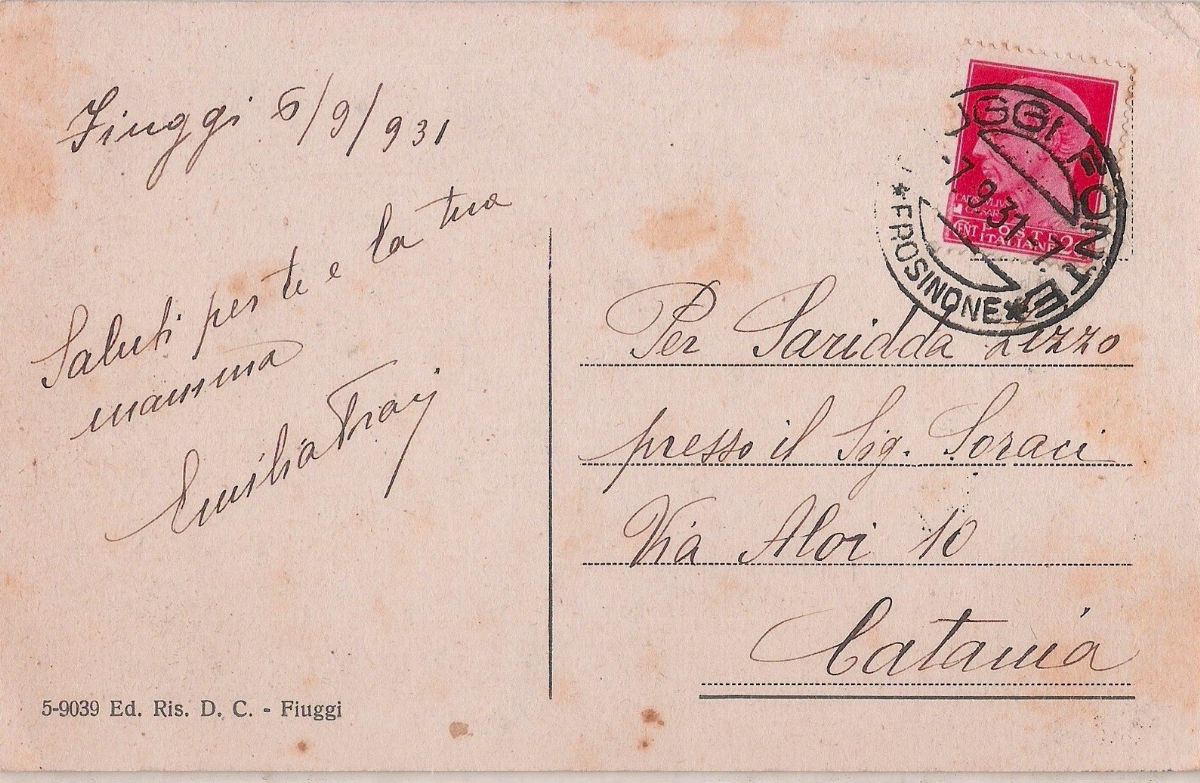 Fiuggi 6/9/931
Saluti per te e la tua
mamma
Emilia
5-9039 Ed. Ris. D. C. - Fiuggi
UGGI FONTE
7.9.31.-7
*FROSINONE*
POSTE
CENT ITALIANE
Per Saridda Lizzo
presso il Sig. Soraci
Via Aloi 10
Catania